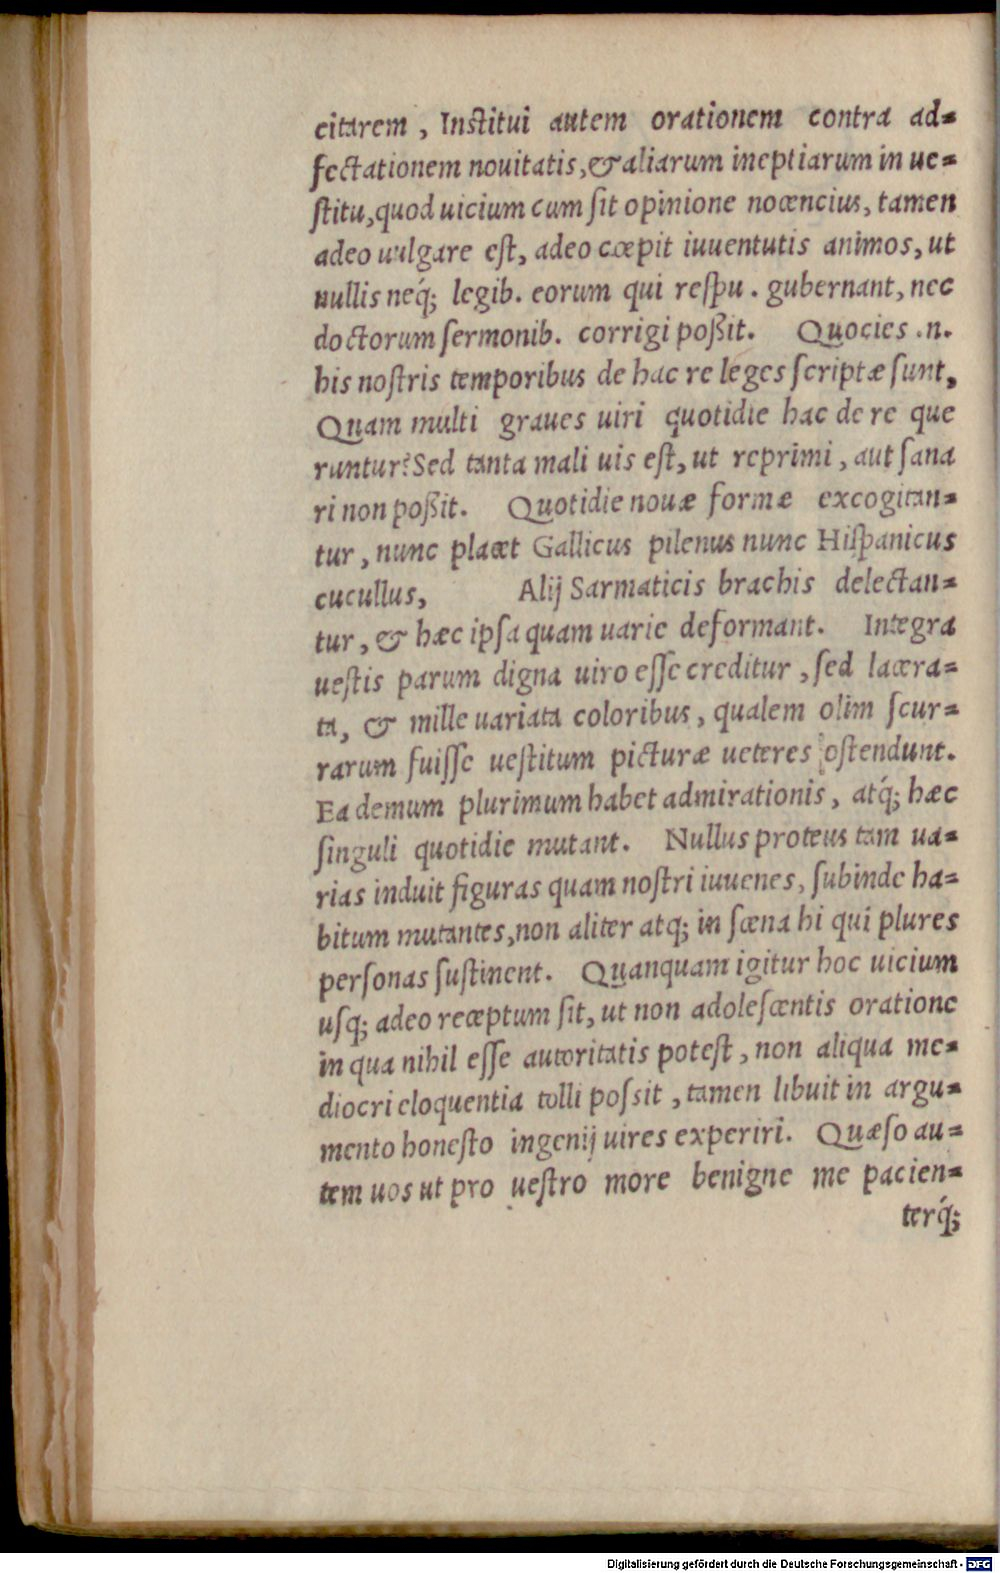 citarem , Institui autem orationem contra ad=
fectationem nouitatis, & aliarum ineptiarum in ue=
stitu, quod uicium cum sit opinione nocencius, tamen
adeo uulgare est, adeo cœpit iuuentutis animos, ut
nullis neq́; legib. eorum qui respu . gubernant, nec
doctorum sermonib. corrigi poßit. Quocies .n.
his nostris temporibus de hac re leges scriptæ sunt,
Quam multi graues uiri quotidie hac de re que
runtur? Sed tanta mali uis est, ut reprimi , aut sana
ri non poßit. Quotidie nouæ formæ excogitan=
tur , nunc placet Gallicus pileus nunc Hispanicus
cucullus, Alij Sarmaticis brachis delectan=
tur , & hæc ipsa quam uarie deformant. Integra
uestis parum digna uiro esse creditur , sed lacera=
ta, & mille uariata coloribus, qualem olim scur=
rarum fuisse uestitum picturæ ueteres ostendunt.
Ea demum plurimum habet admirationis , atq́; hæc
singuli quotidie mutant. Nullus proteus tam ua=
rias induit figuras quam nostri iuuenes, subinde ha=
bitum mutantes, non aliter atq; in scæna hi qui plures
personas sustinent. Quanquam igitur hoc uicium
usq; adeo receptum sit, ut non adolescentis oratione
in qua nihil esse autoritatis potest , non aliqua me=
diocri eloquentia tolli possit , tamen libuit in argu=
mento honesto ingenij uires experiri. Quæso au=
tem uos ut pro uestro more benigne me pacien=
terq́;
Digitalisierung gefördert durch die Deutsche Forschungsgemeinschaft - DFG